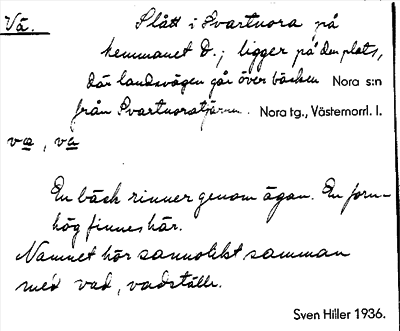 Vå.
Slått i Svartvora på
hemmanet D.; ligger på den plats,
där landsvägen går över bäcken Nora s:n
från Svartvoratjärnen. Nora tg., Västernorrl. l.
va, va
En bäck rinner genom ägan. En forn-
hög finnes här.
Namnet hör sannolikt samman
med vad, vadställe.
Sven Hiller 1936.